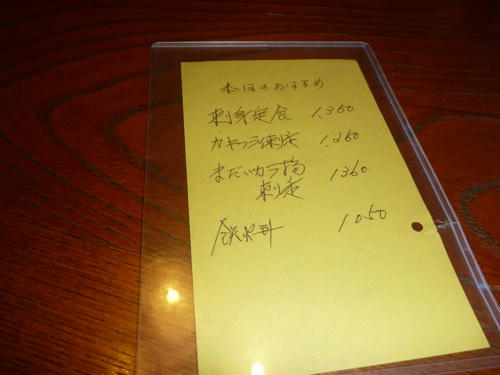 本日のおすすめ
刺身定食 1,350
カキフライ刺定 1,260
まだいカラ揚 1360.
刺定
鉄火丼 1050